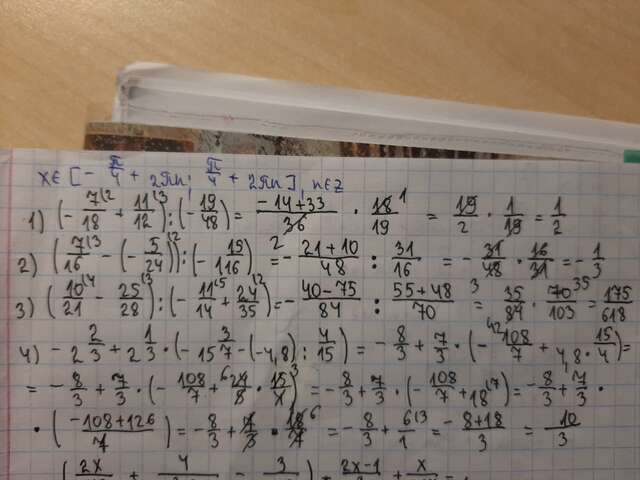 x∈ [- π/4 + 2πn; π/4 + 2πn], n∈Z
1) (- 7/18 + 11/12) : (- 19/48) = -14+33/36 · 18/19 = 19/2 · 1/19 = 1/2
2) (7/16 - (- 5/24)) : (- 15/116) = - 21+10/48 : 31/16 = - 31/48 · 16/31 = - 1/3
3) (10/21 - 25/28) : (- 11/14 + 24/35) = - 40-75/84 : 55+48/70 = 35/84 · 70/103 = 175/618
4) -2 2/3 + 2 1/3 · (-15 3/7 - (-4,8) : 4/15) = - 8/3 + 7/3 · (- 108/7 + 4,8 · 15/4) =
= - 8/3 + 7/3 · (- 108/7 + 24/5 · 15/4) = - 8/3 + 7/3 · (- 108/7 + 18) = - 8/3 + 7/3 ·
· (-108+126/7) = - 8/3 + 7/3 · 18/7 = - 8/3 + 6/1 = -8+18/3 = 10/3
(2x + 4 - 3 2x-1 + x